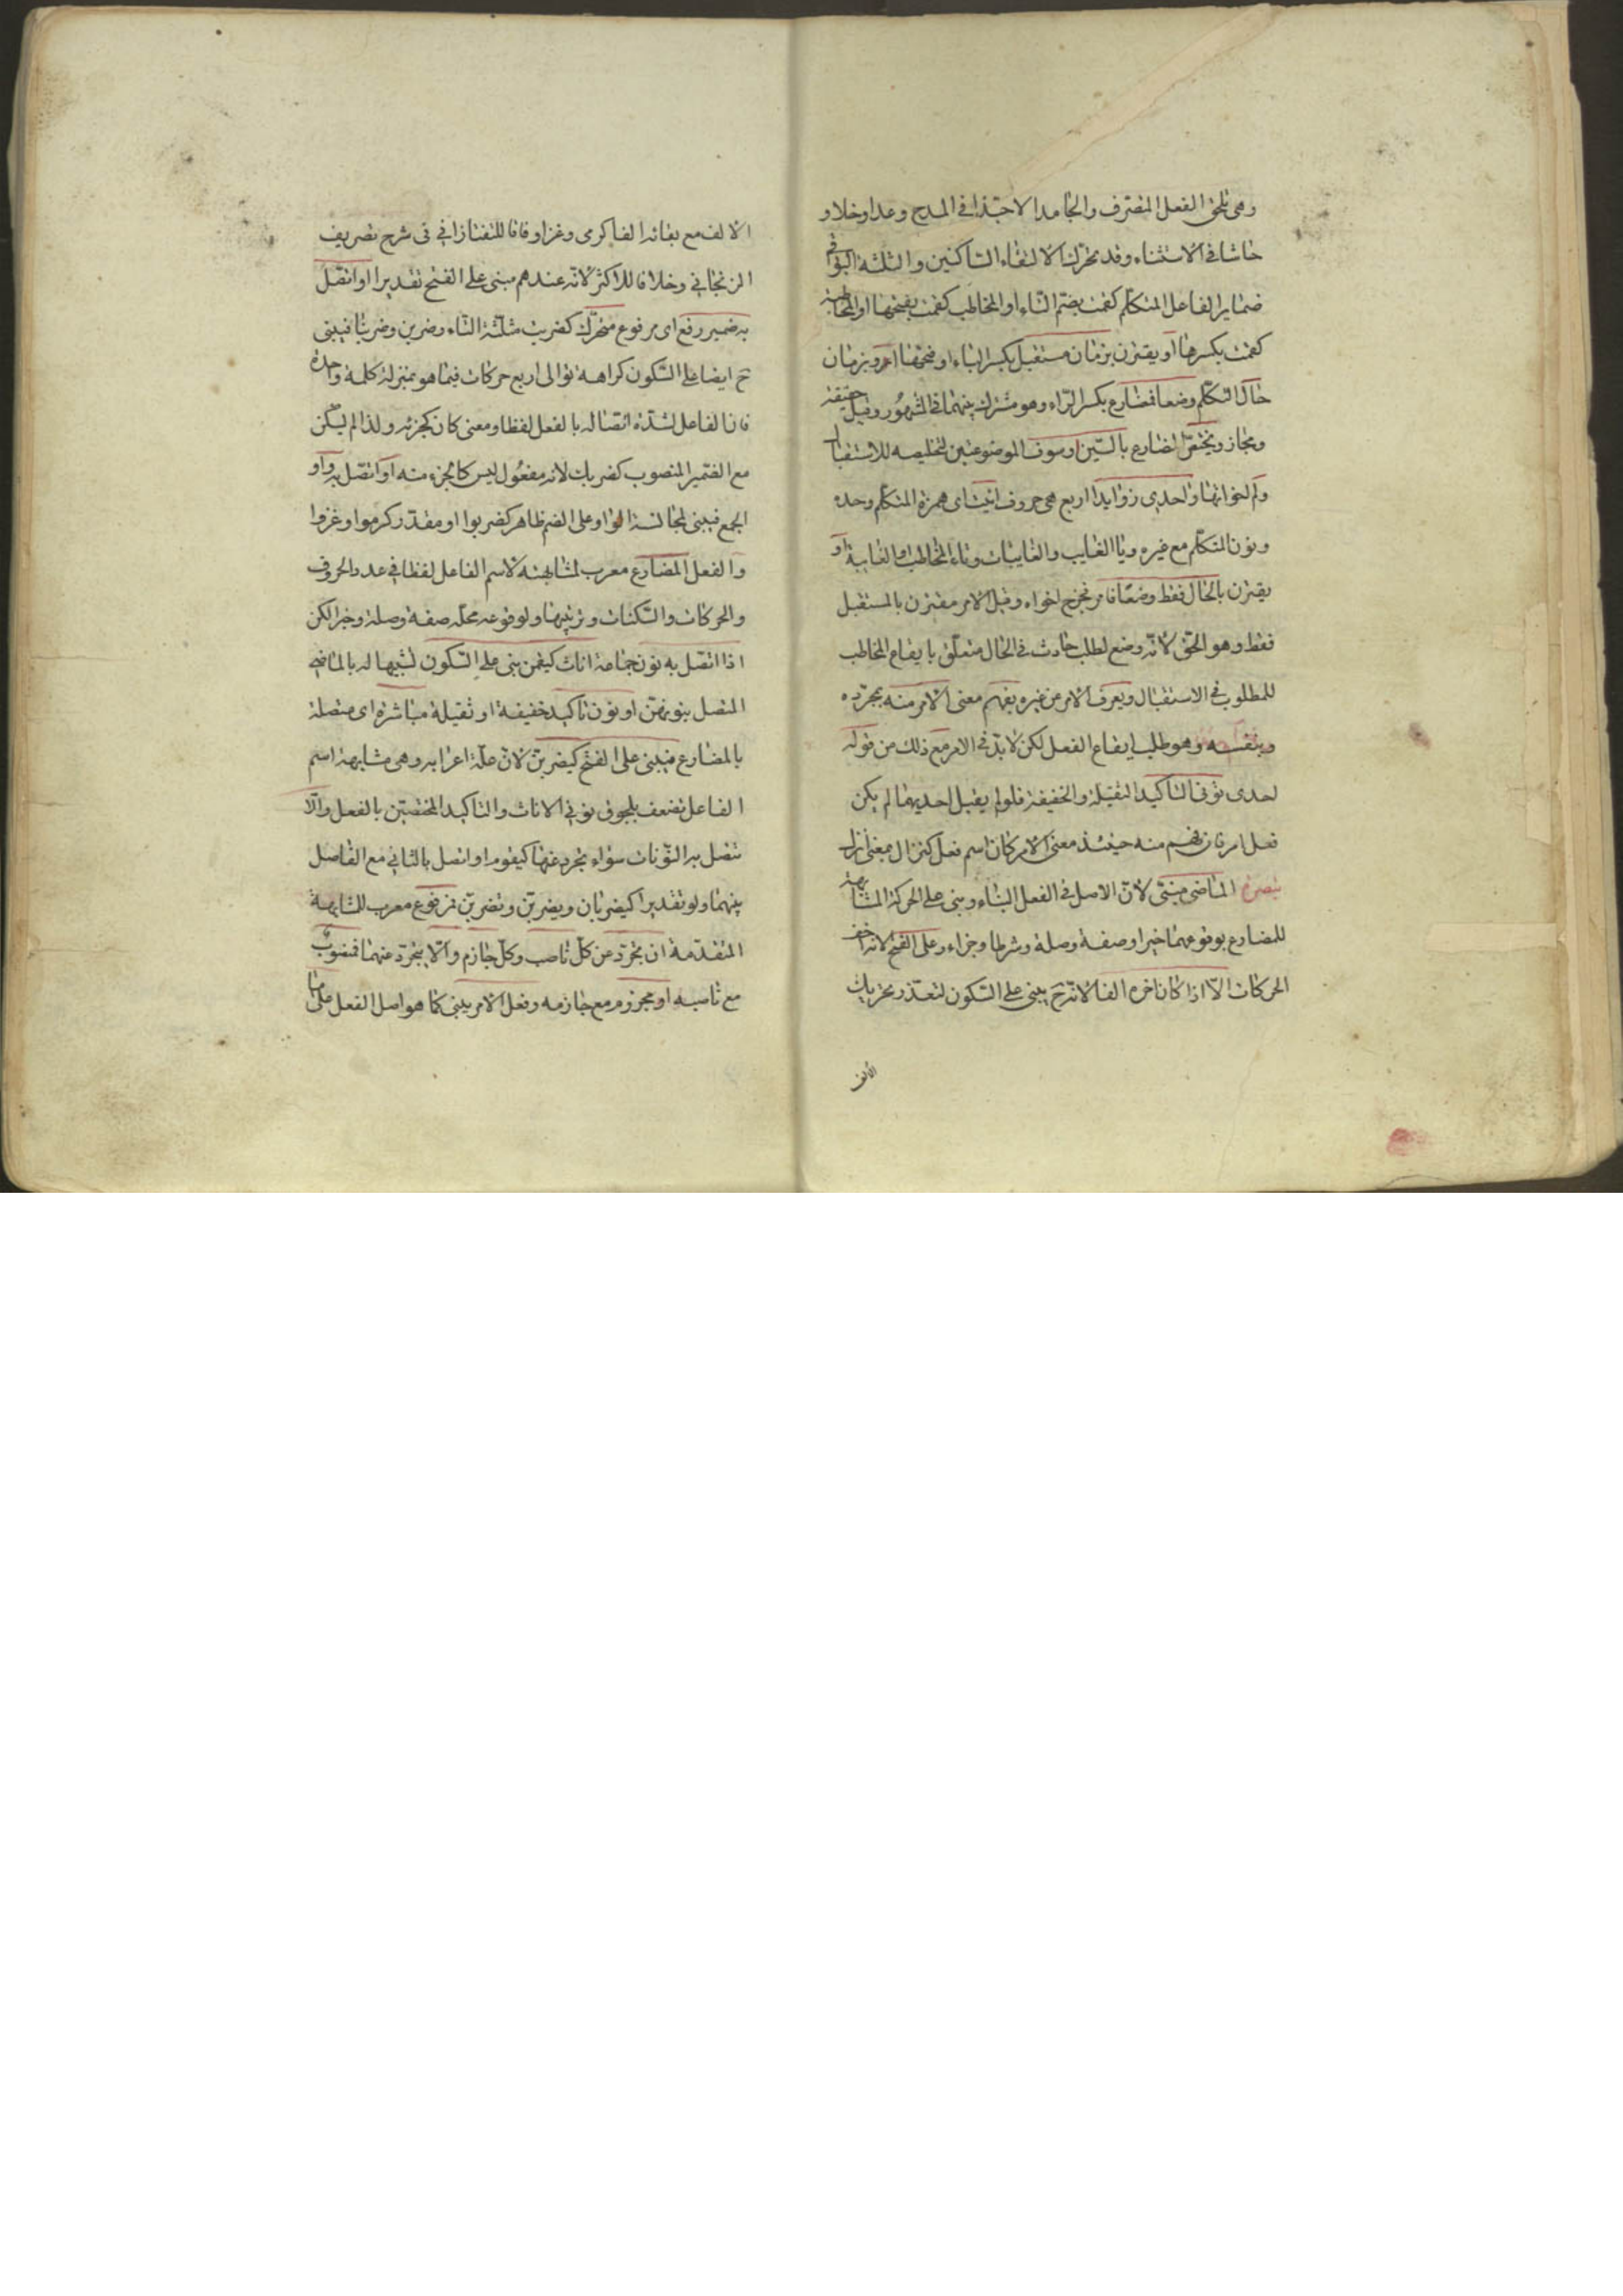 وهى تلحق الفعل المتصرف والجامد الا حبّذا فى المدح وعدا وخلا و
حاشا فى الاستثناء وقد تحرك لالتقاء الساكنين والثلثة البواقى
ضماير الفاعل المتكلّم كقمت بضمّ التّاء او المخاطب كقمت بفتحها او المخاطبة
كقمت بكسرها او يقترن بزمان مستقبل بكسر الباء او فتحها او بزمان
حال التكلّم وضعا فمضارع بكسر الرّاء وهو مشترك بينهما فى المشهور وقيل حقيقة
ومجاز ويختصّ المضارع بالسّين او سوف الموضوعتين لتخليصه للاستقبال
ولم اخواتها واحدى زوايد اربع هى حروف انيت اى همزة المتكلّم وحده
ونون المتكلّم مع غيره ويا الغايب والغايبات وتاء المخاطب والغايبة او
يقترن بالحال فقط وضعا فامر نحو وقيل الامر مقترن بالمستقبل
فقط وهو الحقّ لانّه وضع لطلب حادث فى الحال متعلّق بايقاع المخاطب
للمطلوب فى الاستقبال ويعرف الامر من غيره بفهم معنى الامر منه بمجرّده
وبنفسه وهو طلب ايقاع الفعل لكن لا بدّ فى الامر مع ذلك من قوله
احدى نونى التاكيد الثقيلة والخفيفة فلو لم يقبل احديهما لم يكن
فعل امر فان فهم منه حينئذ معنى الامر كان اسم فعل كنزال بمعنى انزل
تبصرة الماضى مبنىّ لانّ الاصل فى الفعل البناء وبنى على الحركة المشابهة
للمضارع بوقوعهما خبرا وصفة وصلة وشرطا وجزاء وعلى الفتح لانه اخف
الحركات الّا اذا كان اخره الفا لانّه ح يبنى على السّكون لتعذّر تحريك
الالف
الالف مع بقائه الفا كرمى وغزا وفاقا للتفتازانى فى شرح تصريف
الزنجانى وخلافا للاكثر لانّه عندهم مبنى على الفتح تقديرا او اتّصل
به ضمير رفع اى مرفوع متحرّك كضربت مثلّثة التّاء وضربن وضربنا فيبنى
ح ايضا على السّكون كراهة توالى اربع حركات فيما هو بمنزلة كلمة واحدة
فان الفاعل لشدّة اتصاله بالفعل لفظا ومعنى كان كجزئه ولذا لم يسكّن
مع الضّمير المنصوب كضربك لانه مفعول ليس كالجزء منه او اتّصل به واو
الجمع فيبنى لمجانسة الواو على الضم ظاهر كضربوا او مقدّر كرموا وغزوا
والفعل المضارع معرب لمشابهته لاسم الفاعل لفظا فى عدد الحروف
والحركات والسّكنات وترتيبها ولوقوعه محلّه صفة وصلة وخبرا لكن
اذا اتصل به نون جماعة اناث كيقمن بنى على السّكون تشبيها له بالماضى
المتصل بنونهنّ او نون تاكيد خفيفة او ثقيلة مباشرة اى متصلة
بالمضارع فيبنى على الفتح كيضربنّ لانّ علّة اعرابه وهى مشابهة اسم
الفاعل تضعف بلحوق نونى الاناث والتاكيد المختصّتين بالفعل والّا
تتصل به النّونات سواء تجرد عنها كيقوم او اتصل بالثانى مع الفاصل
بينهما ولو تقديرا كيضربان ويضربنّ وتضربنّ فمرفوع معرب للمشابهة
المتقدّمة ان تجرّد عن كلّ ناصب وكلّ جازم والّا يتجرّد عنهما فمنصوب
مع ناصبه او مجزوم مع جازمه وفعل الامر يبنى كما هو اصل الفعل على ما